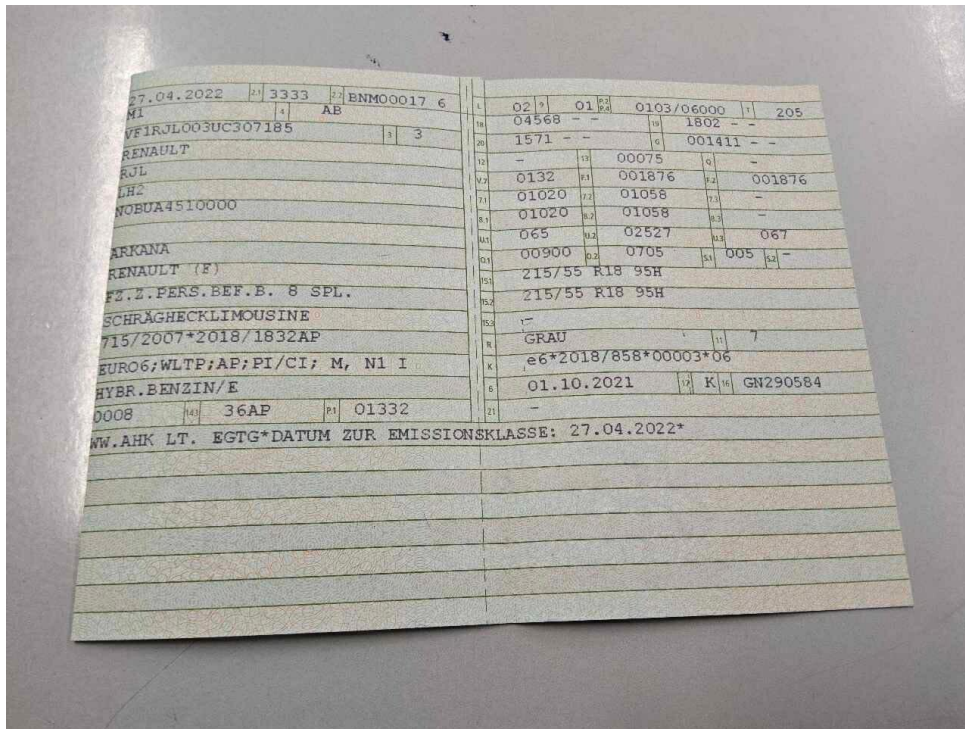 27.04.2022 2.1 3333 2.2 BNM00017 6
M1 4 AB
VF1RJL003UC307185 3 3
RENAULT
RJL
LH2
N0BUA4510000
ARKANA
RENAULT (F)
FZ.Z.PERS.BEF.B. 8 SPL.
SCHRÄGHECKLIMOUSINE
715/2007*2018/1832AP
EURO6;WLTP;AP;PI/CI; M, N1 I
HYBR.BENZIN/E
0008 14.1 36AP P.1 01332
L 02 9 01 P.2 P.4 0103/06000 T 205
18 04568 - - 19 1802 - -
20 1571 - - G 001411 - -
12 - 13 00075 Q -
V.7 0132 F.1 001876 F.2 001876
7.1 01020 7.2 01058 7.3 -
8.1 01020 8.2 01058 8.3 -
U.1 065 U.2 02527 U.3 067
O.1 00900 O.2 0705 S.1 005 S.2 -
15.1 215/55 R18 95H
15.2 215/55 R18 95H
15.3 -
R GRAU 11 7
K e6*2018/858*00003*06
6 01.10.2021 17 K 16 GN290584
21 -
WW.AHK LT. EGTG*DATUM ZUR EMISSIONSKLASSE: 27.04.2022*